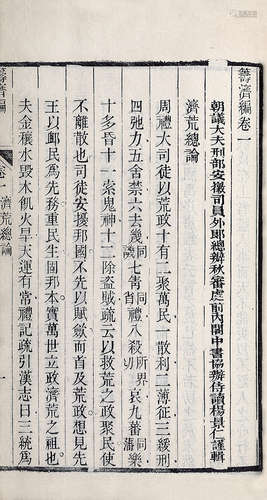 籌濟編卷一
朝議大夫刑部安徽司員外郎總辦秋審處前內閣中書協辦侍讀楊景仁謹輯
濟荒總論
周禮大司徒以荒政十有二聚萬民一散利二薄征三緩刑
四弛力五舍禁六去幾同譏七眚同省禮八殺所界切哀九蕃同藩樂
十多昏十一索鬼神十二除盜賊疏云以救荒之政聚民使
不離散也司徒安擾邦國不先以賦斂而首及荒政想見先
王以卹民為先務重民生固邦本實萬世立政濟荒之祖也
夫金穰水毀木飢火旱天運有常禮記疏引漢志曰三統為
籌濟編
卷一
濟荒總論